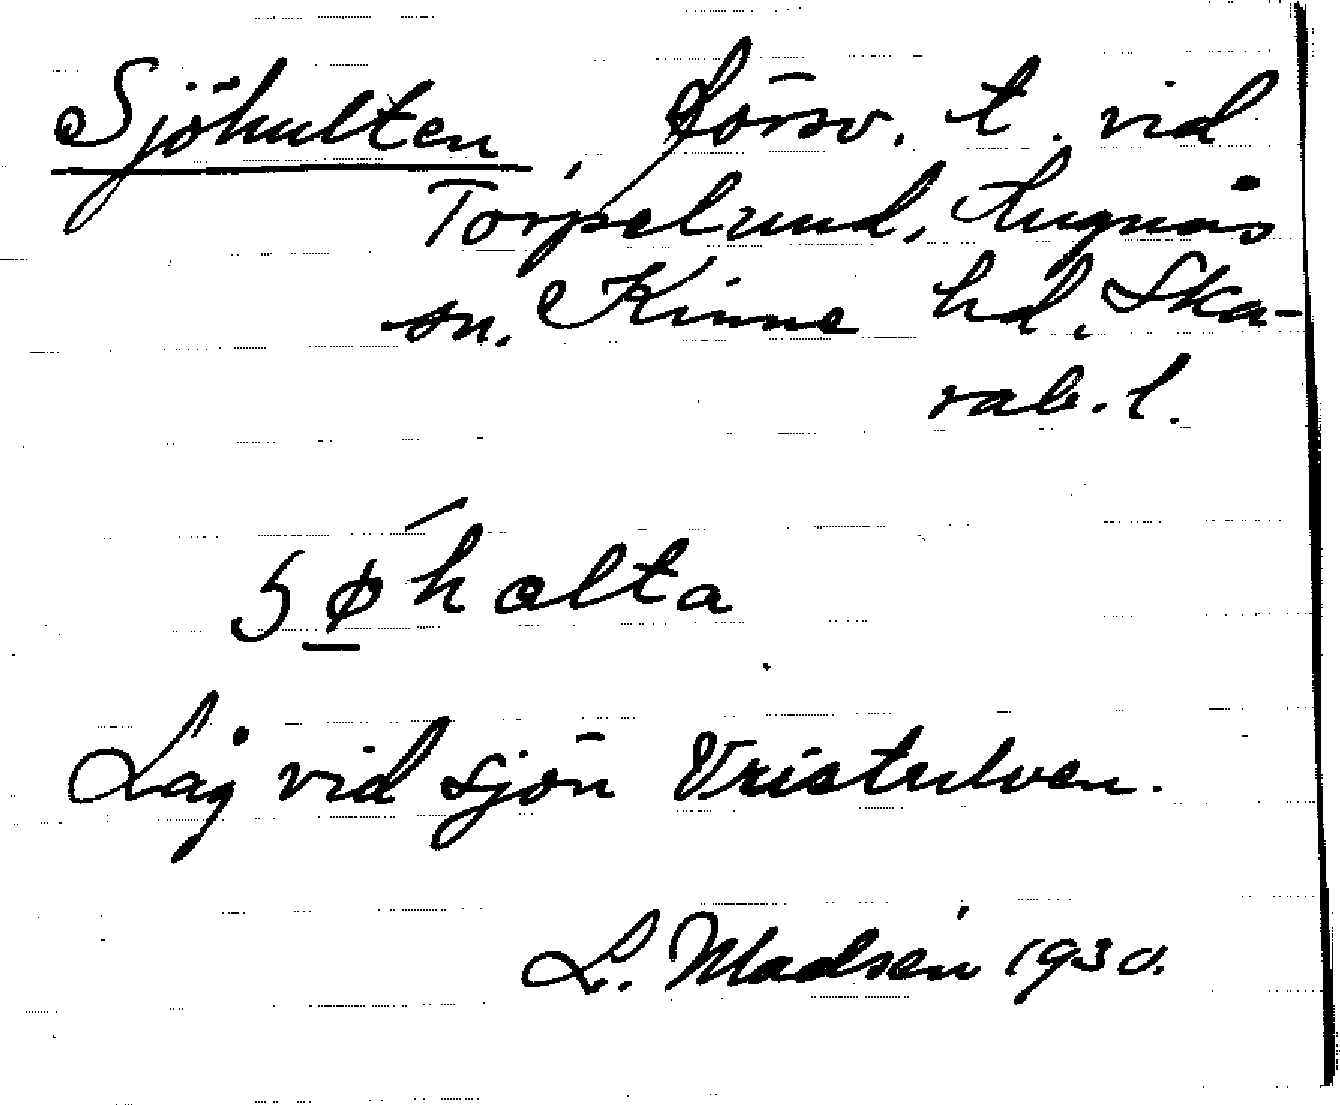 Sjöhulten, försv. t. vid
Torpelund, Lugnås
sn. Kinne hd, Ska-
rab. l.
sǿ̱hɷlta
Låg vid sjön Vristulven.
L. Madsén 1930.